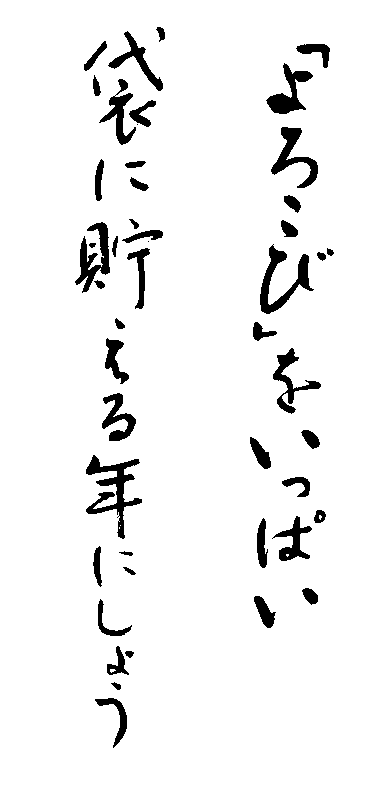 「よろこび」をいっぱい
袋に貯える年にしょう